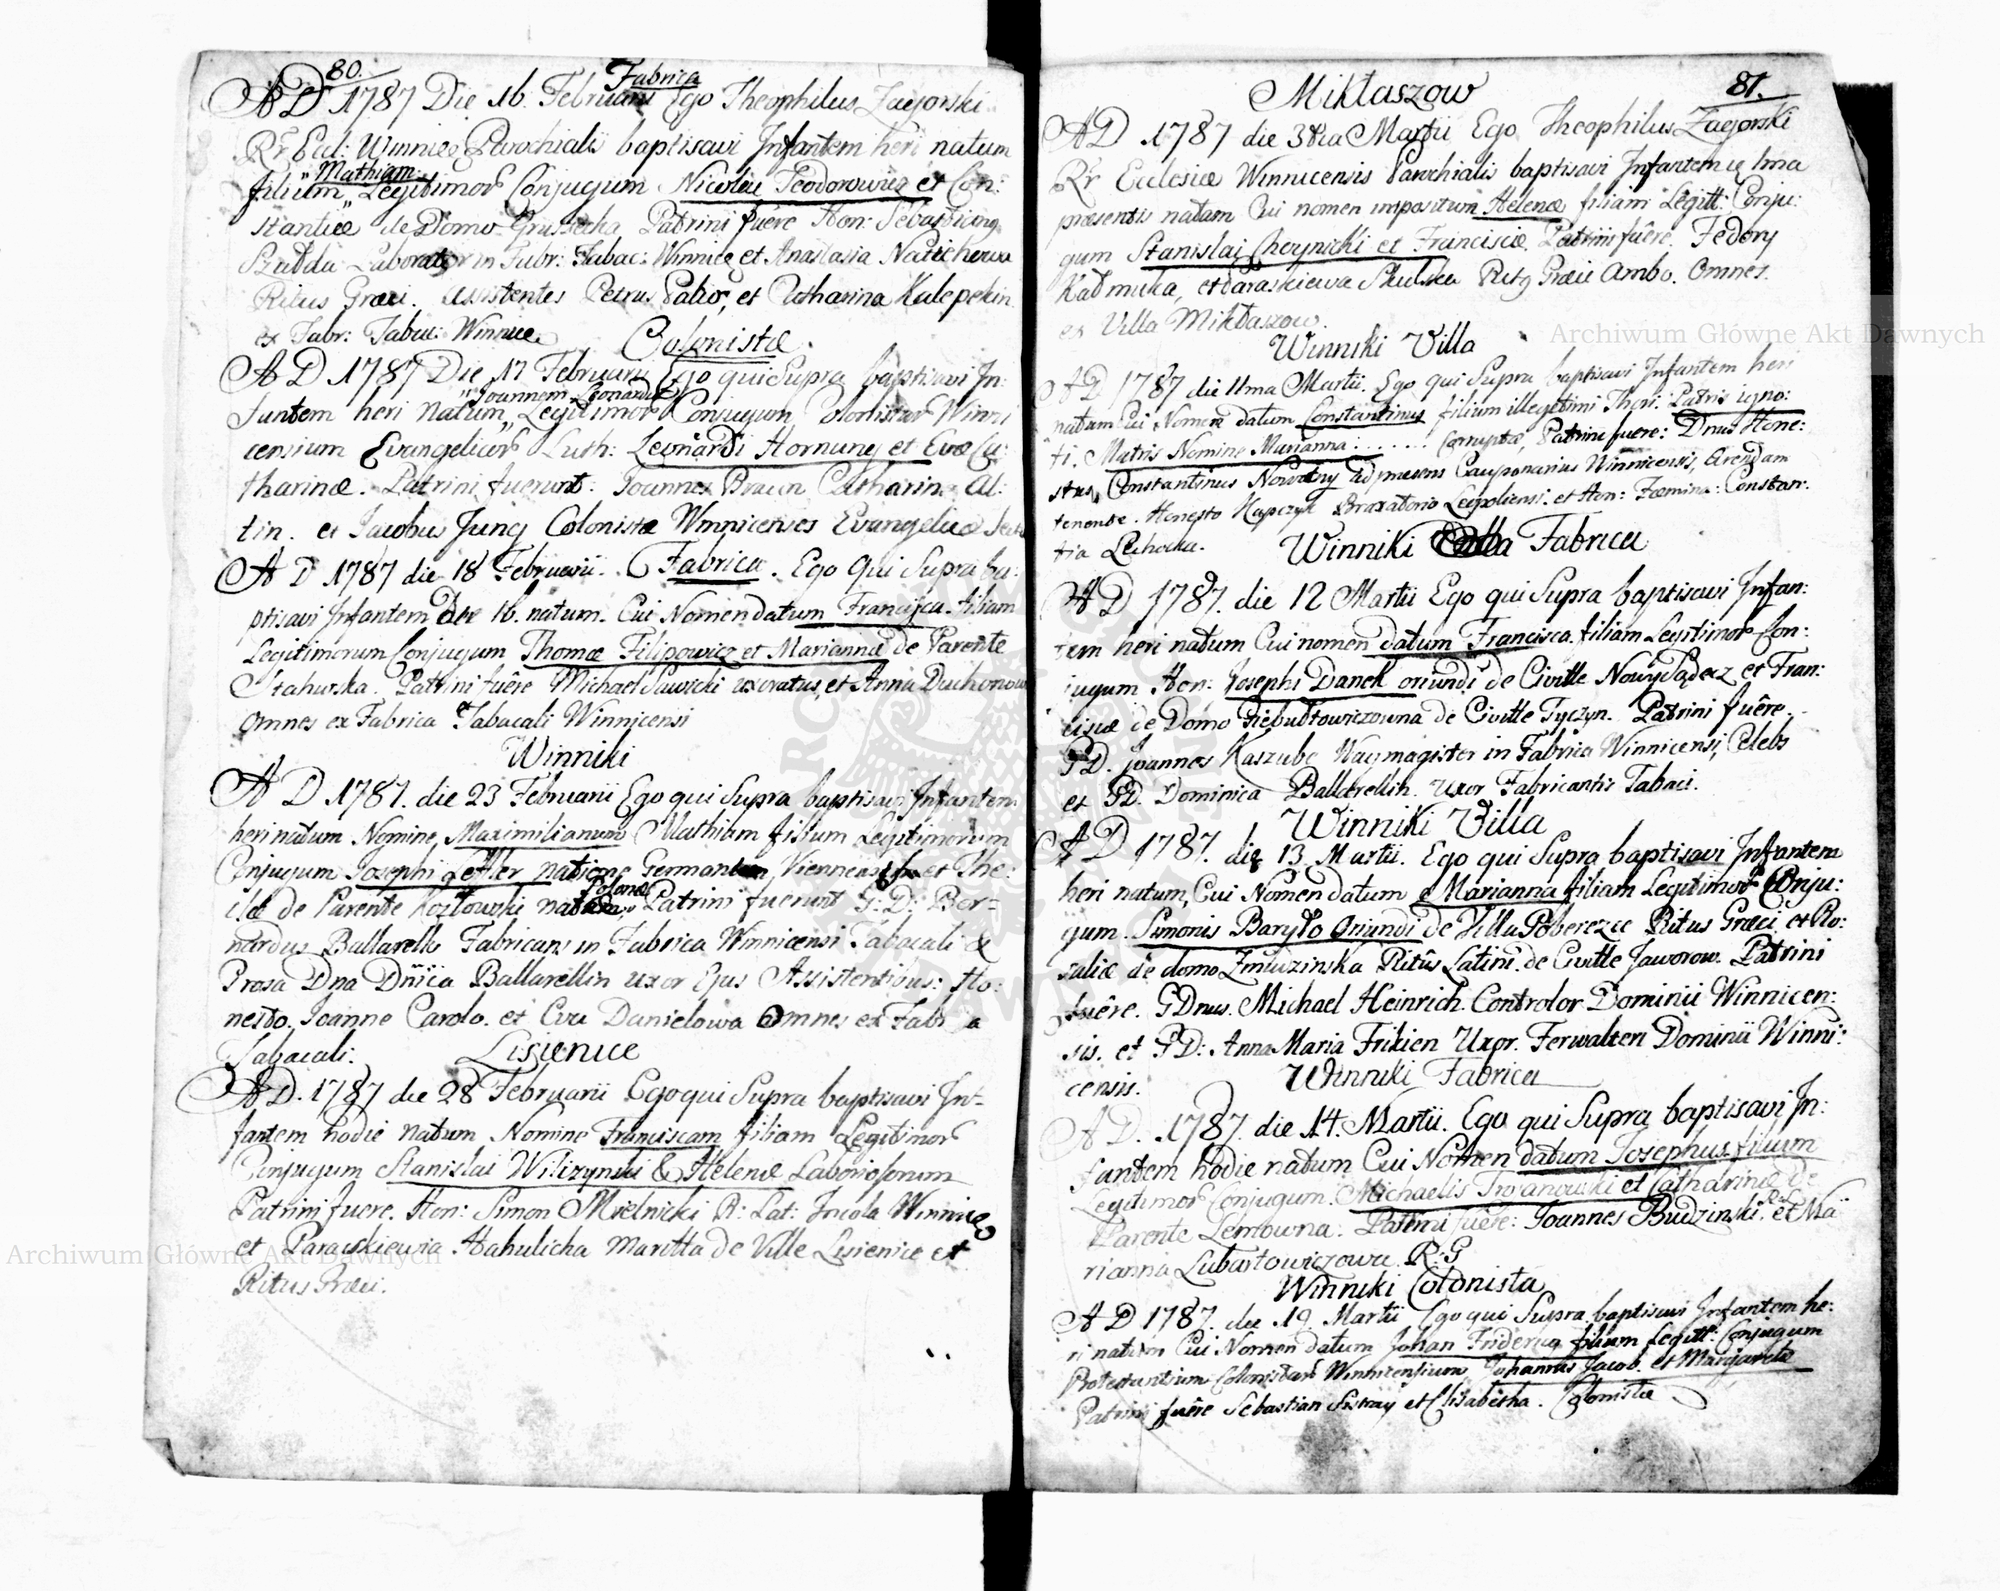 80.
Fabrica
AD 1787 Die 16. Februarii Ego Theophilus Zagorski
Rr Eccl: Winnice Parochialis baptisavi Infantem heri natum
"Mathiam
filium,, Legitimor Conjugum Nicolai Teodorowicz et Con:
stantiæ de Domo Patrini fuêre Hon: Sebastianus
Szudda Laborator in Fabr: Tabac: Winnice et Anastasia
Ritus Græci. Assistentes Petrus et Catharina Kalepekin
ex Fabr: Tabac: Winnice
Colonistæ
AD 1787 Die 17 Februarii Ego qui Supra baptisavi In:
"Joannem Leonard
fantem heri natum,, Legitimor Conjugum Colonistar Winni
censium Evangelicor Luth: Leonardi Hornung et Evæ Ca:
tharinæ. Patrini fuerunt. Joannes Braun Catharin Al:
tin. et Jacobus Jung Colonistæ Winnicenses Evangelicæ
AD 1787 die 18 Februarii. Fabrica. Ego Qui Supra ba:
ptisavi Infantem Die 16. natum. Cui Nomen datum Francisca. filiam
Legitimorum Conjugum Thomæ Filipowicz et Mariannæ de Parente
Stahurska. Patrini fuêre Michael Sawicki uxoratus, et Anna
Omnes ex Fabrica Tabacali Winnicensi
Winniki
AD 1787. die 23 Februarii Ego qui Supra baptisavi Infantem
heri natum Nomine, Maximilianum Mathiam filium Legitimorum
Conjugum Josephi natione et The:
clæ de Parente Kozlowski
Polonæ
Patrini fuerunt G: D: Ber=
nardus Ballarelli Fabricans in Fabrica Winnicensi Tabacali &
Prosa Dna Dnica Ballarellin uxor Ejus Assistentibus: Ho:
nesto. Joanne Carolo. et Eva Danielowa Omnes ex Fabr a
Tabacali:
Lisienice
AD. 1787 die 28 Februarii Ego qui Supra baptisavi In=
fantem hodie natum Nomine Franciscam filiam Legitimor
Conjugum Stanislai Wilizynski & Helenæ Laboriosorum
Patrini fuere. Hon: Simon Mielnicki R: Lat: Incola Winnice
et Paraskiewia Hahulicha Maritta de Ville Lisienice et
Ritus Græci.
81.
Miklaszow
AD 1787 die 3tia Martii Ego Theophilus Zagorski
Rr Ecclesiæ Winnicensis Parochialis baptisavi Infantem 1ma
præsentis natam Cui nomen impositum Helenæ filiam Legitt: Conju:
gum Stanislai Choynicki et Franciscæ Patrini fuêre. Fedory
Kadmuka, et Paraskiewa Skulska Ritg Græci Ambo. Omnes
ex Villa Miklaszow.
Winniki Villa
AD 1787 die 11ma Martii. Ego qui Supra baptisavi Infantem heri
natum Cui Nomen datum Constantinus filium illegitimi Thori. Patris igno:
ti. Matris Nomine Marianna: ..... Corruptæ, Patrini fuere: Dnus Hone:
stus, Constantinus ad præsens Cauponarius Winnicensis, Arendam
tenente. Honesto Kapczyk Braxatorio Leopoliensi. et Hon: Fœmina: Constan:
tia Lichocka.
Winniki Fabrica
AD 1787. die 12 Martii Ego qui Supra baptisavi Infan:
tem heri natum Cui nomen datum Francisca. filiam Legitimor Con:
jugum Hon: Josephi Danek oriundi de Civitte Nowy Sądecz et Fran:
ciscæ de Domo de Civitte Tyczyn. Patrini fuêre.
GD. Joannes Kaszube Waymagister in Fabrica Winnicensi, Celebs
et GD. Dominica Ballarellin. Uxor Fabricantis Tabaci.
Winniki Villa
AD 1787. die 13 Martii. Ego qui Supra baptisavi Infantem
heri natum, Cui Nomen datum Marianna filiam Legitimor Conju:
gum. Simonis Baryło Oriundi de Villa Poberezce Ritus Græci, et Ro:
saliæ de domo Zmudzinska Ritûs Latini. de Civitte Jaworow. Patrini
fuêre. GDnus. Michael Heinrich. Controlor Dominii Winnicen:
sis. et GD: Anna Maria Frikien Uxor. Ferwalteri Dominii Winni:
censis.
Winniki Fabrica
AD. 1787. die 14. Martii. Ego qui Supra baptisavi In:
fantem hodie natum Cui Nomen datum Josephus filium
Legitimor Conjugum. Michaelis Troianowski et Catharinæ de
Parente Lemowna. Patrini fuêre: Joannes Budzinski. R.L. et Ma
rianna Lubartowiczowa. R:G
Winniki Colonista
AD 1787. die 19 Martii Ego qui Supra baptisavi Infantem he:
ri natum Cui Nomen datum Johan Fridericg filium Legitt: Conjugum
Protestantium Colonistar Winnicensium Johannis Jacob. et Margareta
Patrini fuêre Sebastian et Elisabetha. Colonistæ
Archiwum Główne Akt Dawnych
Archiwum Główne Akt Dawnych